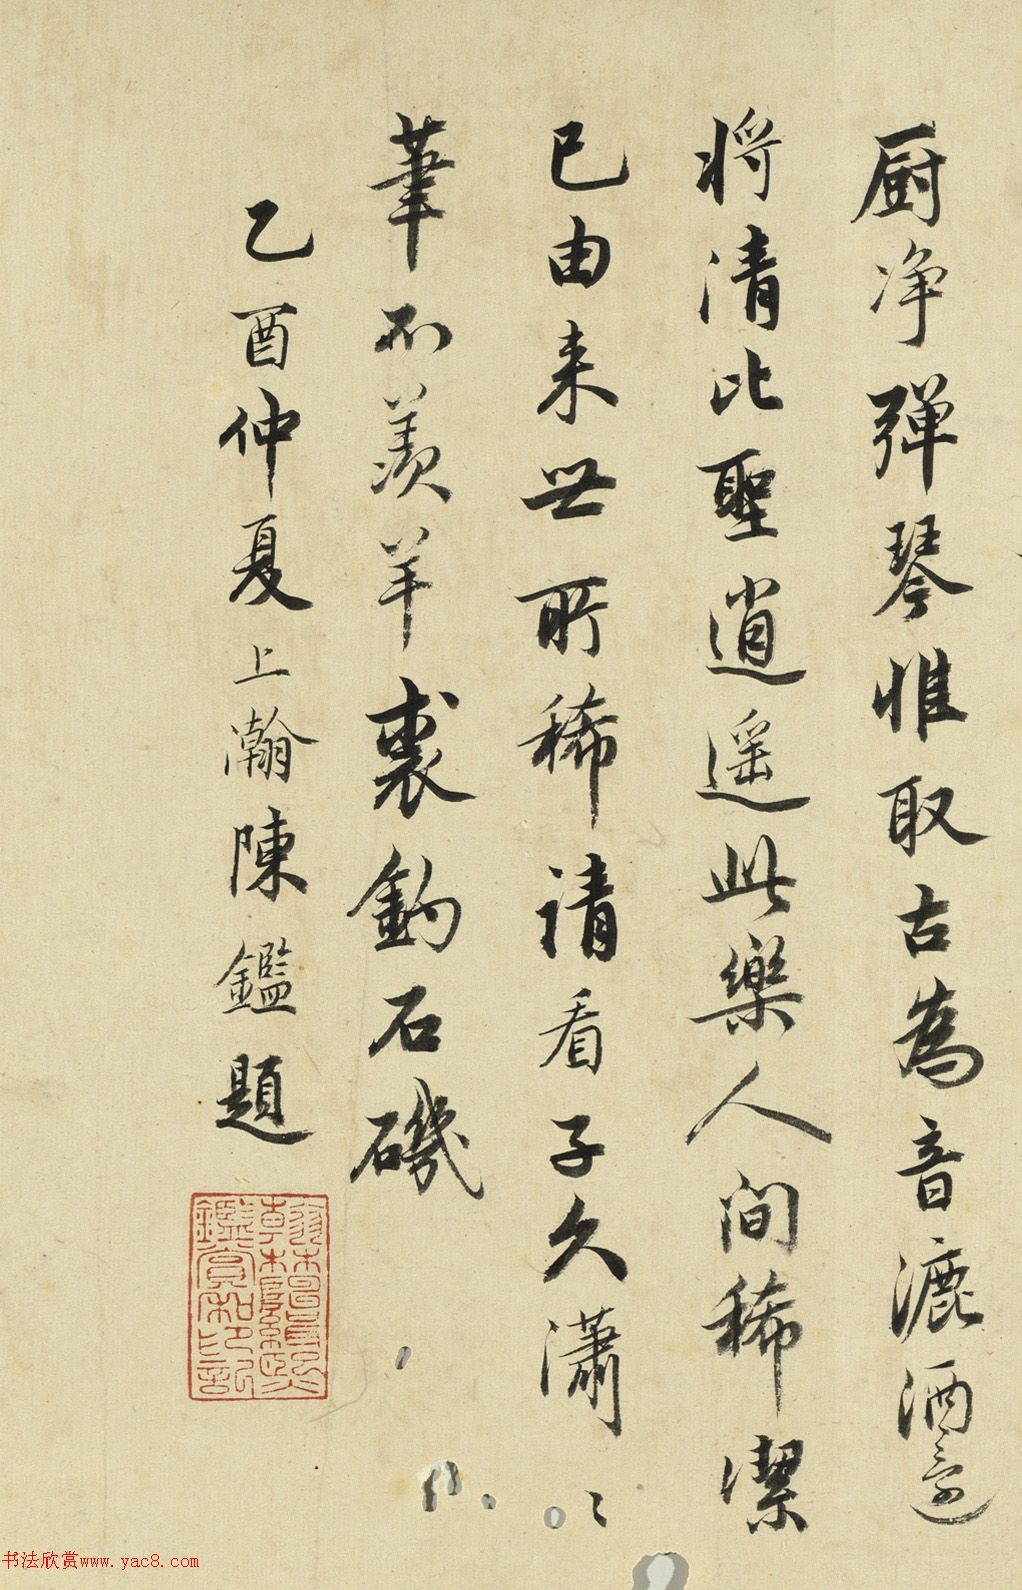 厨净弹琴惟取古為音漉酒還
将清比聖逍遥此樂人间稀潔
已由来世所稀請看子久瀟々
筆不羡羊裘釣石磯
乙酉仲夏上瀚陳鑑題
书法欣赏www.yac8.com